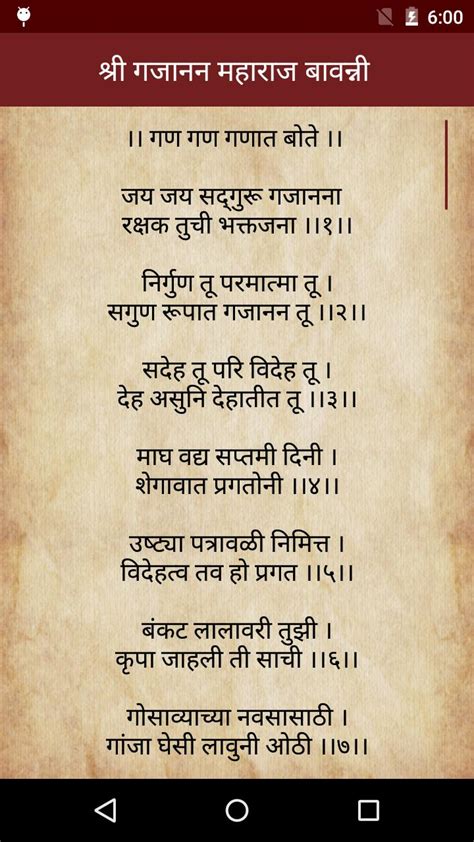 6:00
श्री गजानन महाराज बावन्नी
।। गण गण गणात बोते ।।
जय जय सद्गुरू गजानना
रक्षक तुची भक्तजना ।।१।।
निर्गुण तू परमात्मा तू ।
सगुण रूपात गजानन तू ।।२।।
सदेह तू परि विदेह तू ।
देह असुनि देहातीत तू ।।३।।
माघ वद्य सप्तमी दिनी ।
शेगावात प्रगतोनी ।।४।।
उष्ट्या पत्रावळी निमित्त ।
विदेहत्व तव हो प्रगत ।।५।।
बंकट लालावरी तुझी ।
कृपा जाहली ती साची ।।६।।
गोसाव्याच्या नवसासाठी ।
गांजा घेसी लावुनी ओठी ।।७।।